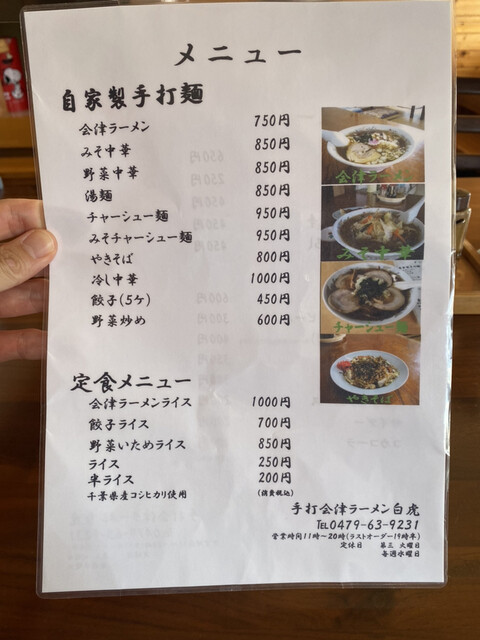 メニュー
自家製手打麺
会津ラーメン 750円
みそ中華 850円
野菜中華 850円
湯麺 850円
チャーシュー麺 950円
みそチャーシュー麺 950円
やきそば 800円
冷し中華 1000円
餃子(5ケ) 450円
野菜炒め 600円
会津ラーメン
みそ中華
チャーシュー麺
やきそば
定食メニュー
会津ラーメンライス 1000円
餃子ライス 700円
野菜いためライス 850円
ライス 250円
半ライス 200円
千葉県産コシヒカリ使用 (消費税込)
手打会津ラーメン白虎
TEL0479-63-9231
営業時間11時~20時(ラストオーダー19時半)
定休日 第三 火曜日
毎週水曜日